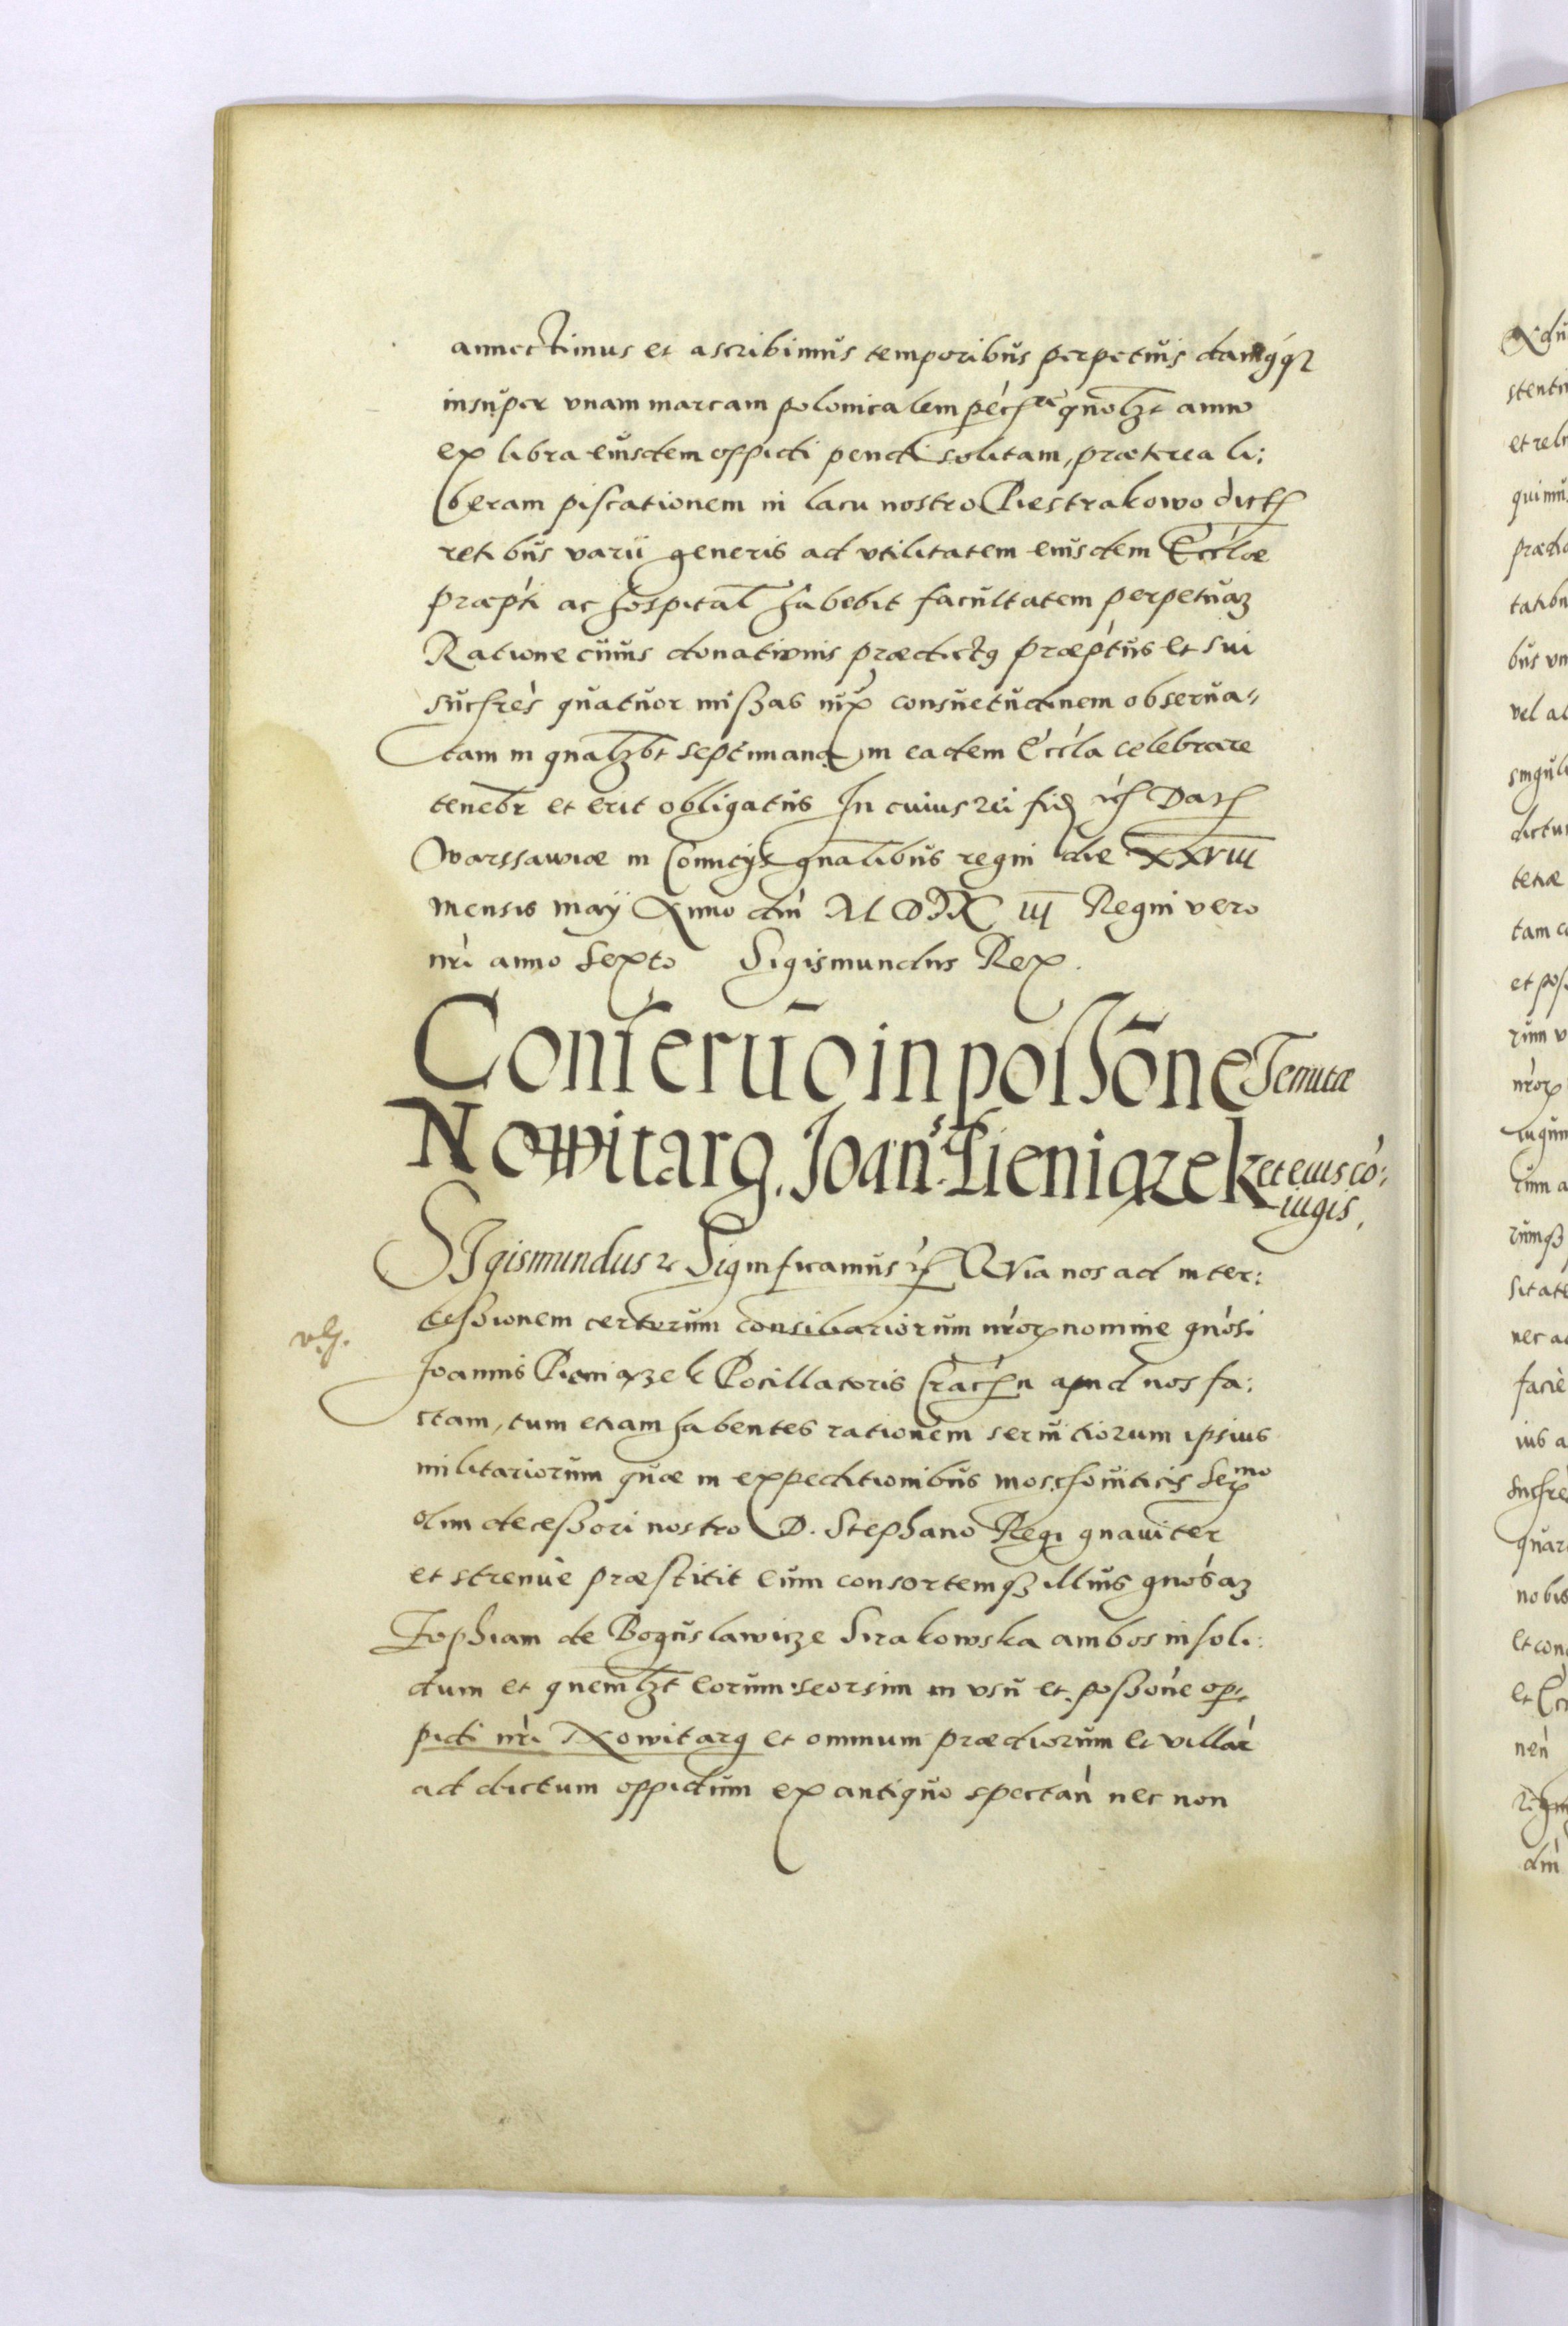 annectimus et ascribimus temporibus perpetuis damusqz
insuper vnam marcam polonicalem quolzt anno
ex libra eiusdem oppidi pendi solitam, præterea li:
beram piscationem in lacu nostro Piestrakowo dict
retibus varii generis ad vtilitatem eiusdem Eccłæ
præpti ac hospital habebit facultatem perpetuaz
Ratione cuius donationis prædictus præptus et sui
succres quatuor missas iux consuetudinem obserua-
tam in qualzbt septimana, in eadem Eccła celebrare
tenebr et erit obligatus In cuius rei fid etc Dat
Warssawiæ in Comitijs gnalibus regni die XXVIII
mensis maij Anno dni M D X C III Regni vero
nri anno Sexto Sigismundus Rex.
Conseruo in possone Tenutæ
Nowitarg. Joan. Pieniązek et eius co:
iugis.
SIgismundus etc Significamus etc QVia nos ad inter:
cessionem certorum consiliariorum nror nomine gnosi
Joannis Pieniązek Pocillatoris Cracn apud nos fa:
ctam, tum etiam habentes rationem seruitiorum ipsius
militariorum quæ in expeditionibus moschouiticis Sermo
olim decessori nostro D. Stephano Regi gnauiter
et strenue præstitit eum consortemqz illius gnosaz
Zophiam de Boguslawicze Sirakowska ambos in soli:
dum et quemlzt eorum seorsim in vsu et possone op-
pidi nri Nowitarg et omnium prædiorum et villar
ad dictum oppidum ex antiquo spectan nec non